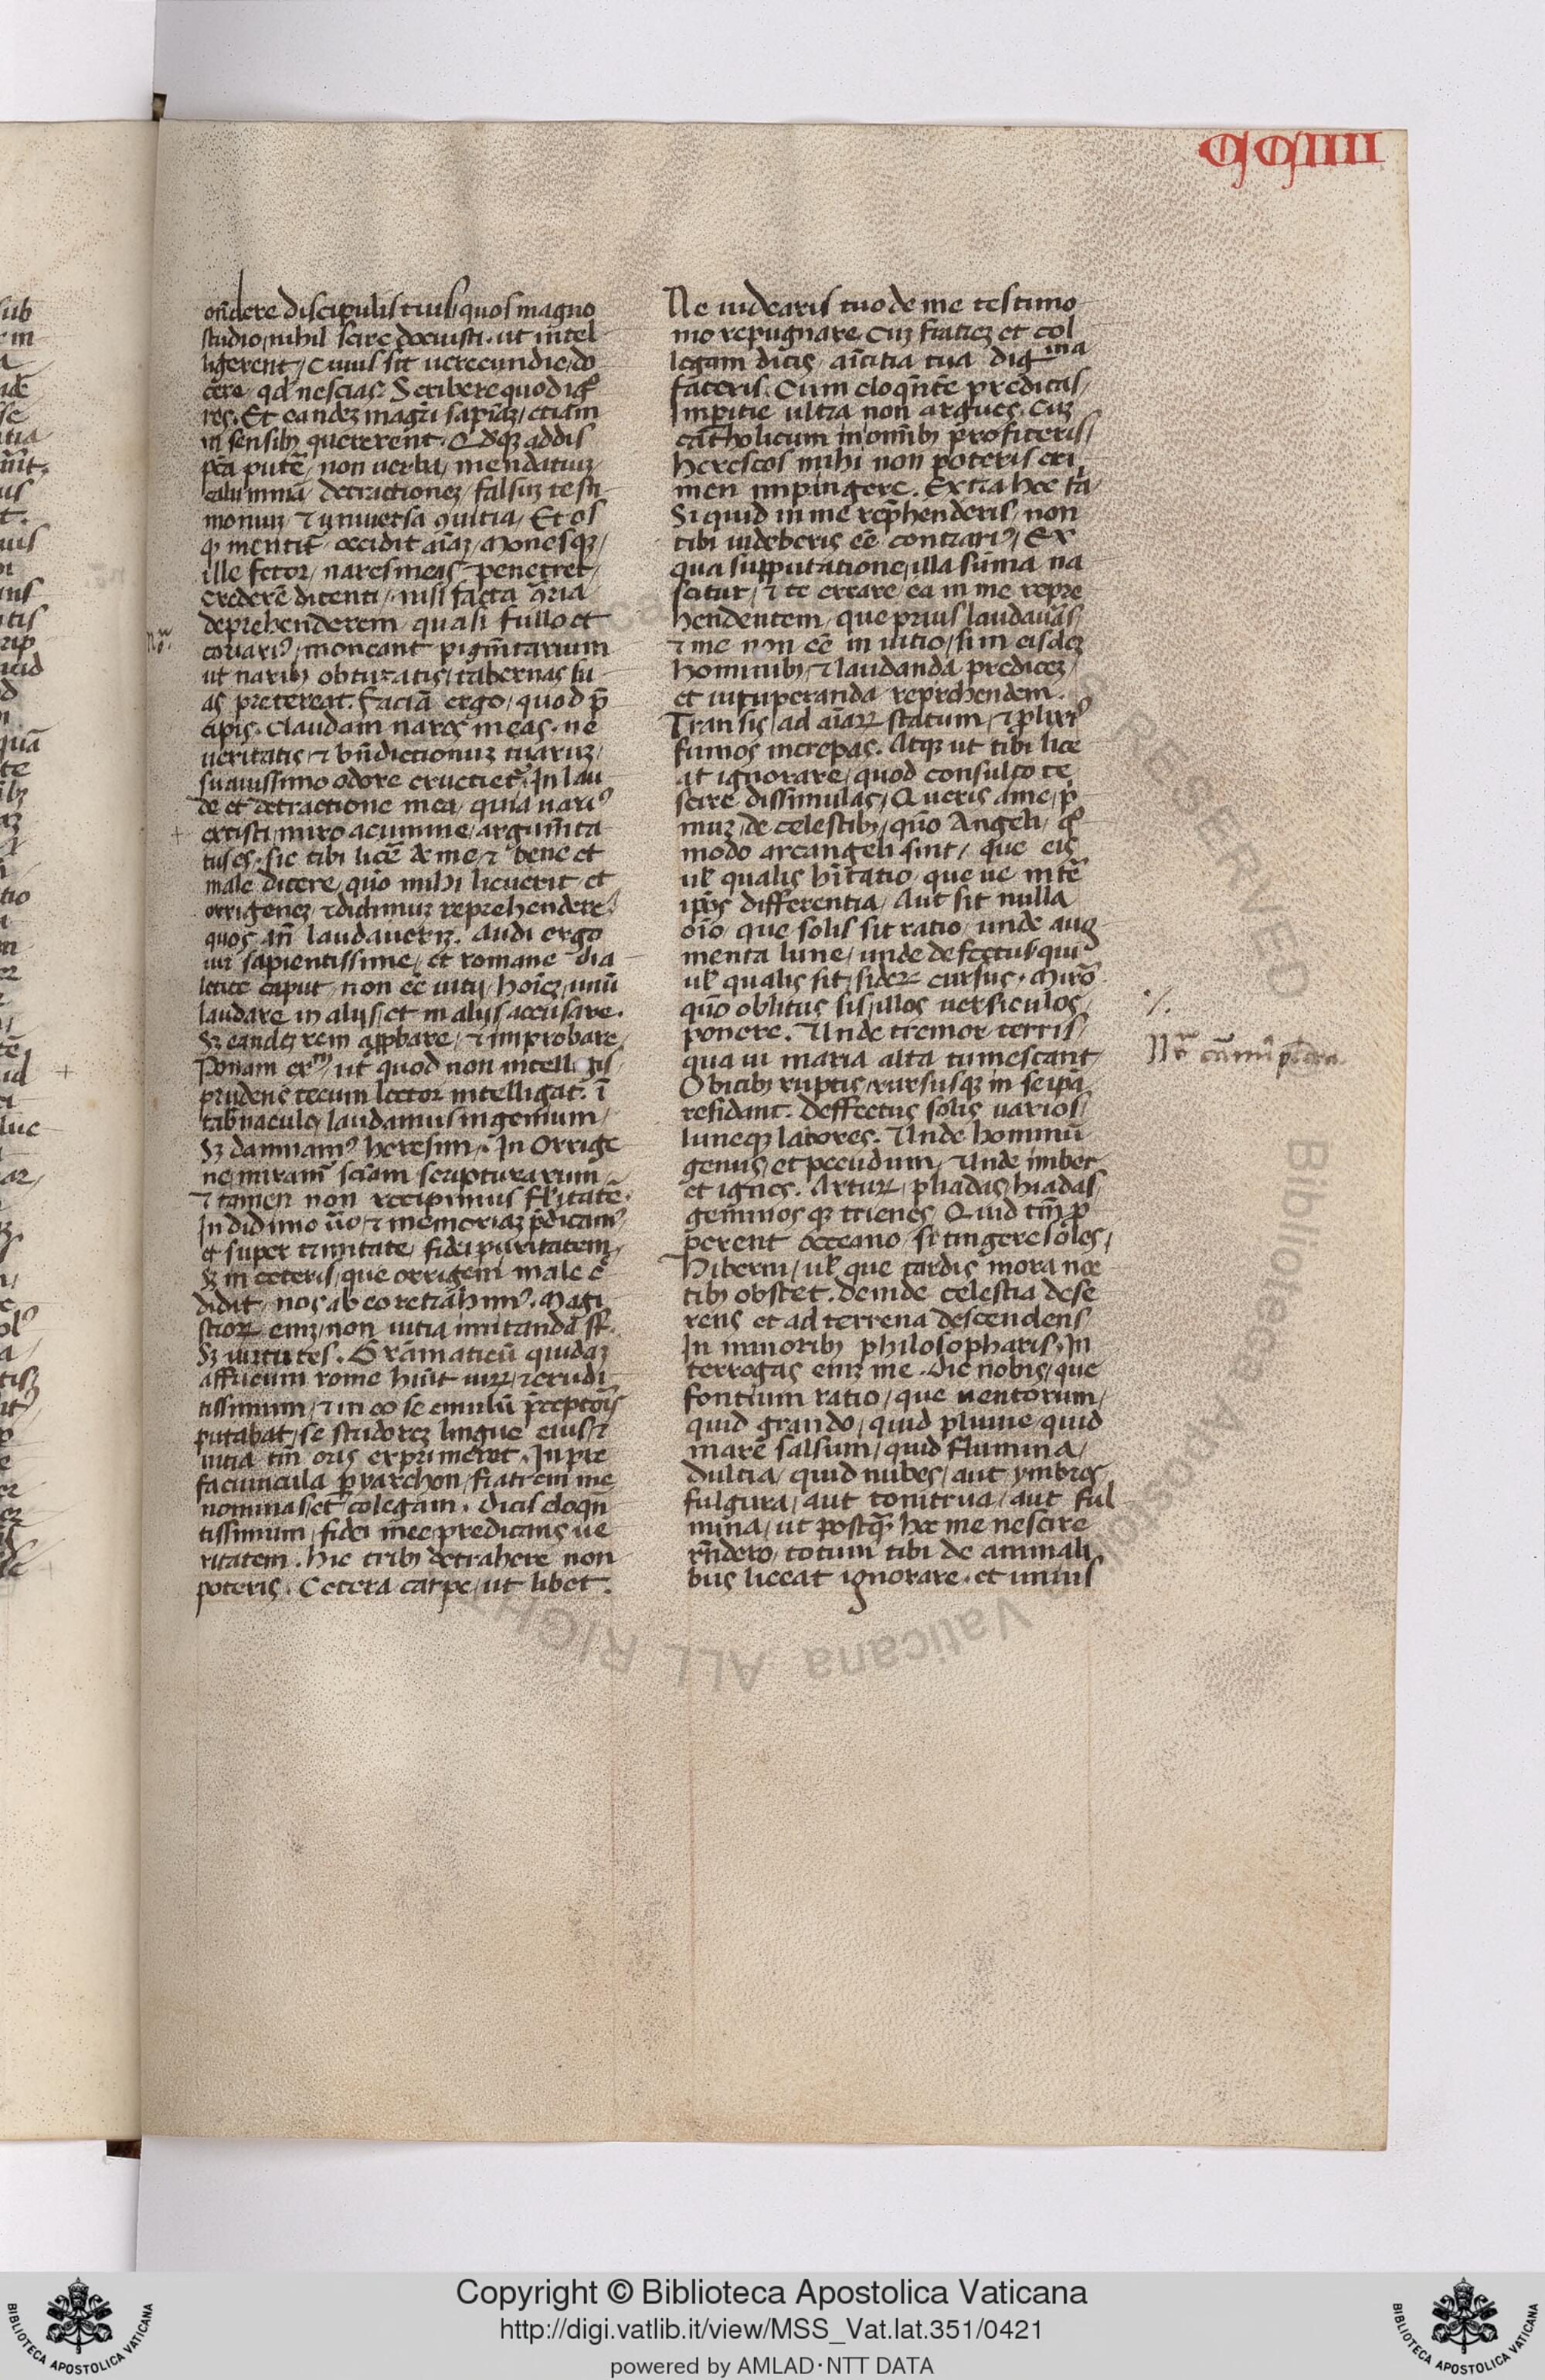 CCIIII
ondere discipulis tuis quos magno
studio nihil scire docuisti. ut intel
ligerent / cuius sit uerecundie / do
cere / qd nescias? Scribere quod igͦ
res. Et eandez magri sapiaz / etiam
in sensibꝫ quererent. Qdqꝫ addis
pctā putēt / non uerba / mendatiuz /
calumniā / detractionez / falsuz testi
moniuz / ⁊ uniuersa ꝯuitia / Et os
qͦ mentit᷑ / occidit aiaz / Monesqꝫ /
ille fetor / nares meas penetret /
crederē dicenti / nisi facta ꝯria
deprehenderem quasi fullo et
coriariꝰ / moneant pigmtarium
ut naribꝫ obturatis / tabernas su
as pretereat. Faciā ergo / quod p̄
cipis. Claudam nares meas. ne
ueritatis / ⁊ bn̄dictionuz tuaruz /
suauissimo odore crucier? In lau
de et detractione mea / quia uariꝰ
extisti / miro acumine / argumta
tus es. sic tibi licē de me / ⁊ bene et
male dicere / quō mihi licuerit et
orrigenez / ⁊ didimuz reprehendere /
quos an̄ laudauerz. Audi ergo
uir sapientissime / et romane dia
letice caput / non eē uitij / hoiez / unū
laudare in alijs / et in alijs accusare.
Sꝫ eandez rem apꝓbare / ⁊ improbare /
Ponam exᵐ / ut quod non intelligis /
prudens tecum lector intelligat. ī
tabnaculo / laudamus ingenium /
Sꝫ damnamꝰ heresim. In Orrige
ne / miramr̄ sciam scripturarum /
⁊ tamen non recipimus fl̄itatē.
In didimo ūo / ⁊ memoriaz p̄dicamꝰ
et super trinitate / fidei puritatem /
Sꝫ in ceteris / que orrigeni male c̄
didit / nos ab eo retrahimꝰ. Magi
strorꝝ enīz / non uitia imitanda st.
Sꝫ uirtutes. Gramaticū quidaz
affricum rome hūit uirꝝ / ⁊ erudi
tissimum / ⁊ in eo se emulū p̄ceptoris
putabat / se stridorez lingue eius / ⁊
uitia tm̄ oris exprimeret. In pre
faciuncula pyarchon / fratrem me
nominas / et colegam. dicis eloqn̄
tissimum / fidei mee predicans ue
ritatem. Hic tribꝫ detrahere non
poteris. Cetera carpe / ut libet.
Ne uidearis tuo de me testimo
nio repugnare. Cuz fratrez et col
legam dicis / aicitia tua digna
fateris. Cum eloqn̄te predicas /
Impitie ultra non argues. Cuz
catholicum in omibꝫ profiteris /
hereseos mihi non poteris cri
men impingere. Extra hec tā /
Si quid in me rep̄henderis / non
tibi uideberis eē contrariꝰ / Ex
qua supputatione / illa sūma na
scitur / ⁊ te errare / ea in me repre
hendentem / que prius laudauas /
⁊ me non eē in uitio / si in eisdez
hominibꝫ / ⁊ laudanda predicez /
et uituperanda reprehendem.
Transis / ad aiarꝝ statum / ⁊ plixiꝰ
fumos increpas. Atqꝫ ut tibi lice
at ignorare / quod consulto te
scire dissimulas / Queris ame / p̄
muz / de celestibꝫ / quō Angeli / qͦ
modo arcangeli sint / que eis
ul̄ qualis hītatio / que ue intē
ip̄os differentia / Aut sit nulla
oīo / que solis sit ratio / unde aug
menta lune / unde defectus / qui
ul̄ qualis sit / siderꝝ cursus. Mirō
quō oblitus sis / illos uersiculos
ponere. Unde tremor terris /
qua ui maria alta tumescant
Obicibꝫ ruptis / rursusqꝫ in seipā
residant. deffectus solis uarios /
luneqꝫ labores. Unde hominū
genus / et pecudum / Unde imber
et ignes. Arturꝝ / pliadas / hiadas /
geminosqꝫ trienes Quid tm̄ ꝓ
perent occeano / se tingere soles /
Hiberni / ul̄ que tardis mora noc
tibꝫ obstet. deinde celestia dese
rens et ad terrena descendens
In minoribꝫ philosopharis. In
terrogas eniz me. Dic nobis / que
fontium ratio / que uentorum /
quid grando / quid pluuie / quid
mare salsum / quid flumina /
dulcia / quid nubes / aut ymbres
fulgura / aut tonitrua / aut ful
mina / ut postqꝫ hec me nescire
rn̄dero / totum tibi de animali
bus liceat ignorare. et unius